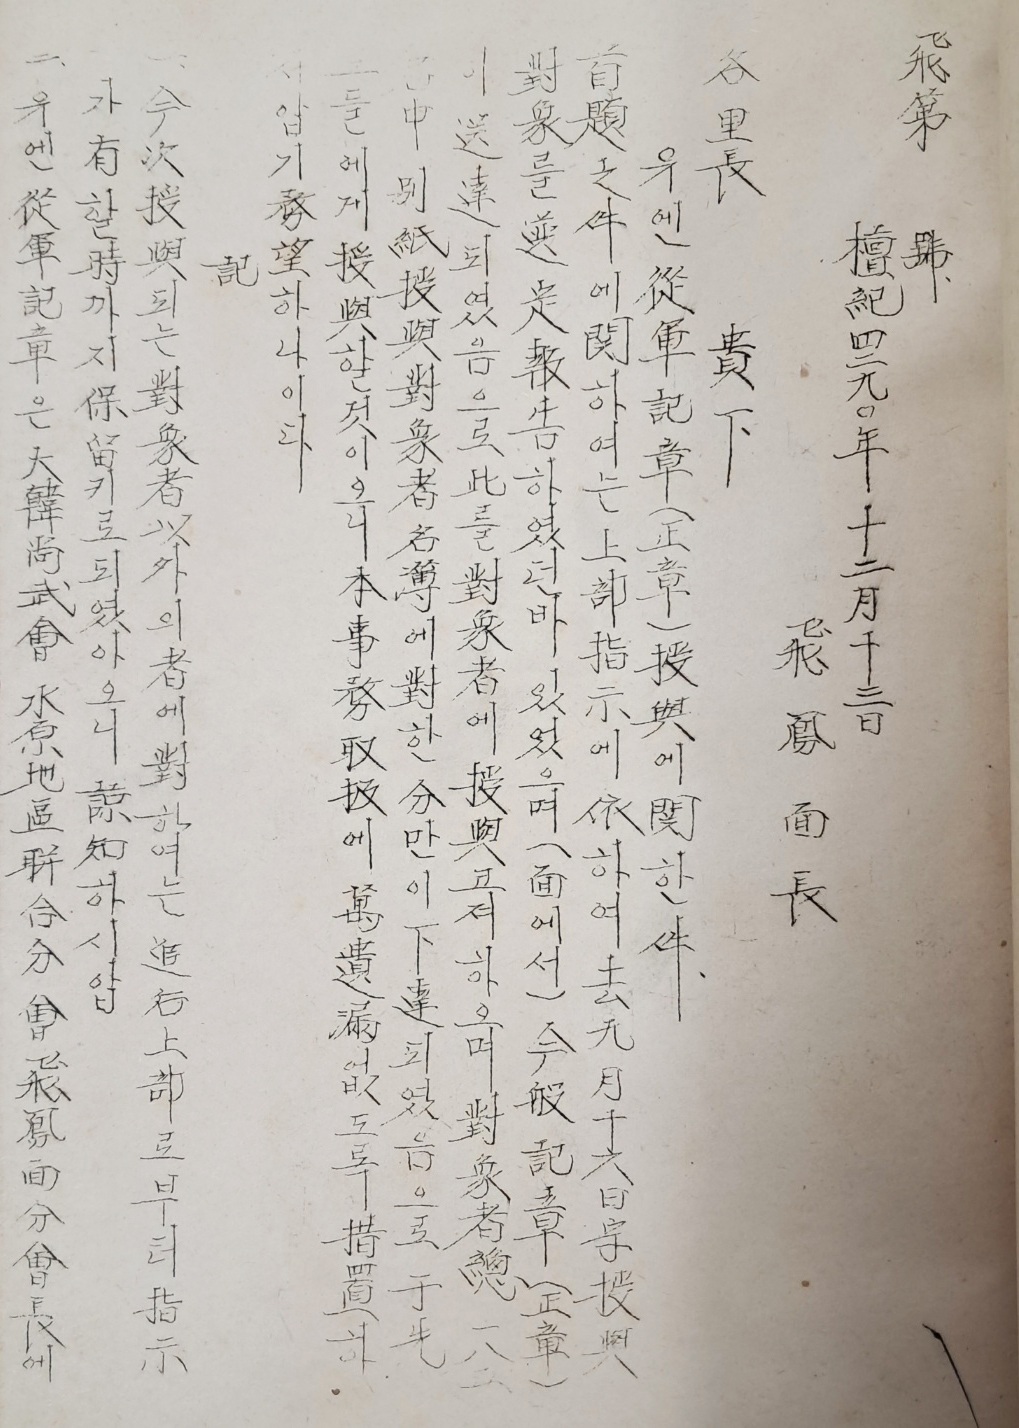 飛第　號、
檀紀四二九〇年十二月十三日
飛鳳面長
各里長 貴下
유엔從軍記章(正章)授與에関한件、
首題之件에関하여는上部指示에依하여去九月十六日字授與
對象를選定報告하였던바 있었으며(面에서)今般記章(正章)
이 送達되였음으로此를對象者에授與코저하오며對象者總一八
中 別紙授與對象者名簿에對한分만이下達되였음으로于先
들에게授與할것이오니本事務取扱에萬遺漏없도록措置하
시압기務望하나이다
記
一、今次授與되는對象者以外의者에對하여는追后上部로부터指示
가有할時까지保留키로되였아오니諒知하시압
二、유엔從軍記章은大韓尚武會水原地區聯合分會飛鳳面分會長에